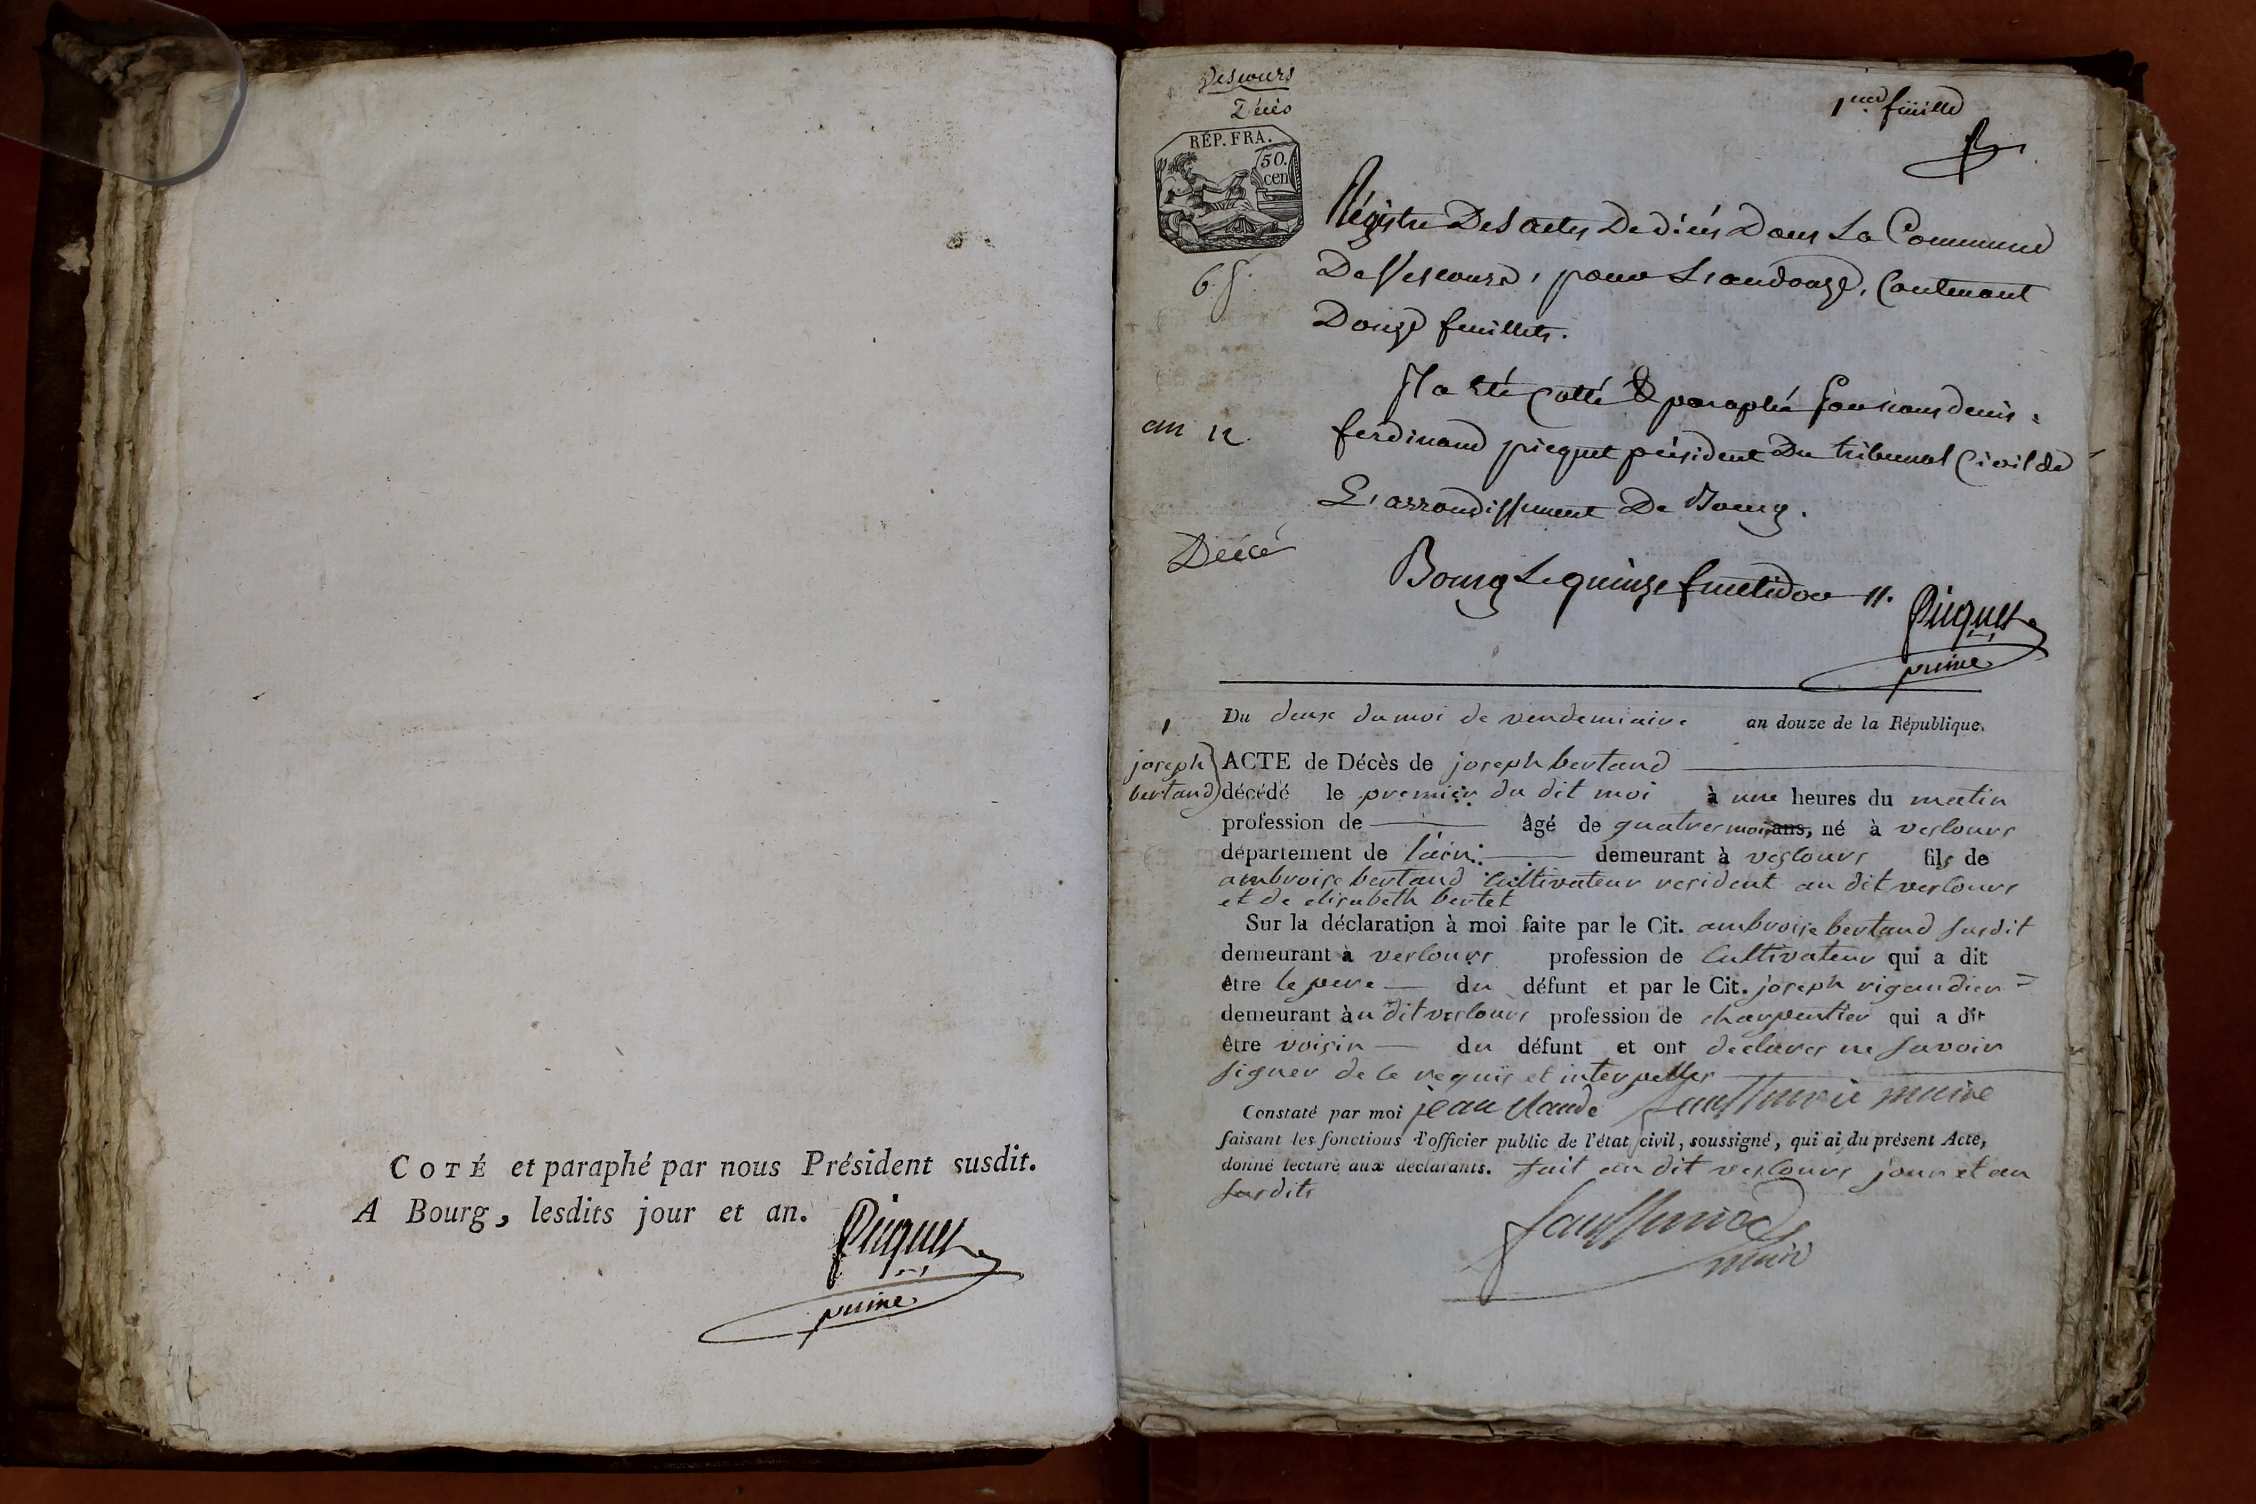 COTÉ et paraphé par nous Président susdit.
A Bourg, lesdits jour et an.
Picquet
Vescours
Décès
1.ere feuille
RÉP. FRA.
50.
cen
Régistre Des actes De décès Dans La Commune
De Vescours, pour L'an douze, Contenant
Douze feuillets.
Il a été Cotté & paraphé par nous denis
an 12
ferdinand picquet président Du tribunal Civil de
L'arrondissement De Bourg.
Décé
Bourg Le quinze fructidor 11.
Picquet
1
Du deux du moi de vendemiaire an douze de la République.
joseph bertand
ACTE de Décès de joseph bertand
décédé le premier du dit moi à une heures du matin
profession de âgé de quatres mois ans, né à vescours
département de l'ain demeurant à vescours fils de
ambroise bertand Cultivateur resident au dit vescours
et de elisabeth bertet
Sur la déclaration à moi faite par le Cit. ambroise bertand susdit
demeurant à vescours profession de Cultivateur qui a dit
être le pere du défunt et par le Cit. joseph rigaudier
demeurant àu dit vescours profession de charpentier qui a dit
être voisin du défunt et ont declares ne savoir
signer de ce requis et interpelles
Constaté par moi jean claude maire
faisant les fonctions d'officier public de l'état civil, soussigné, qui ai du présent Acte,
donné lecture aux déclarants. fait au dit vescours jour et an
susdits